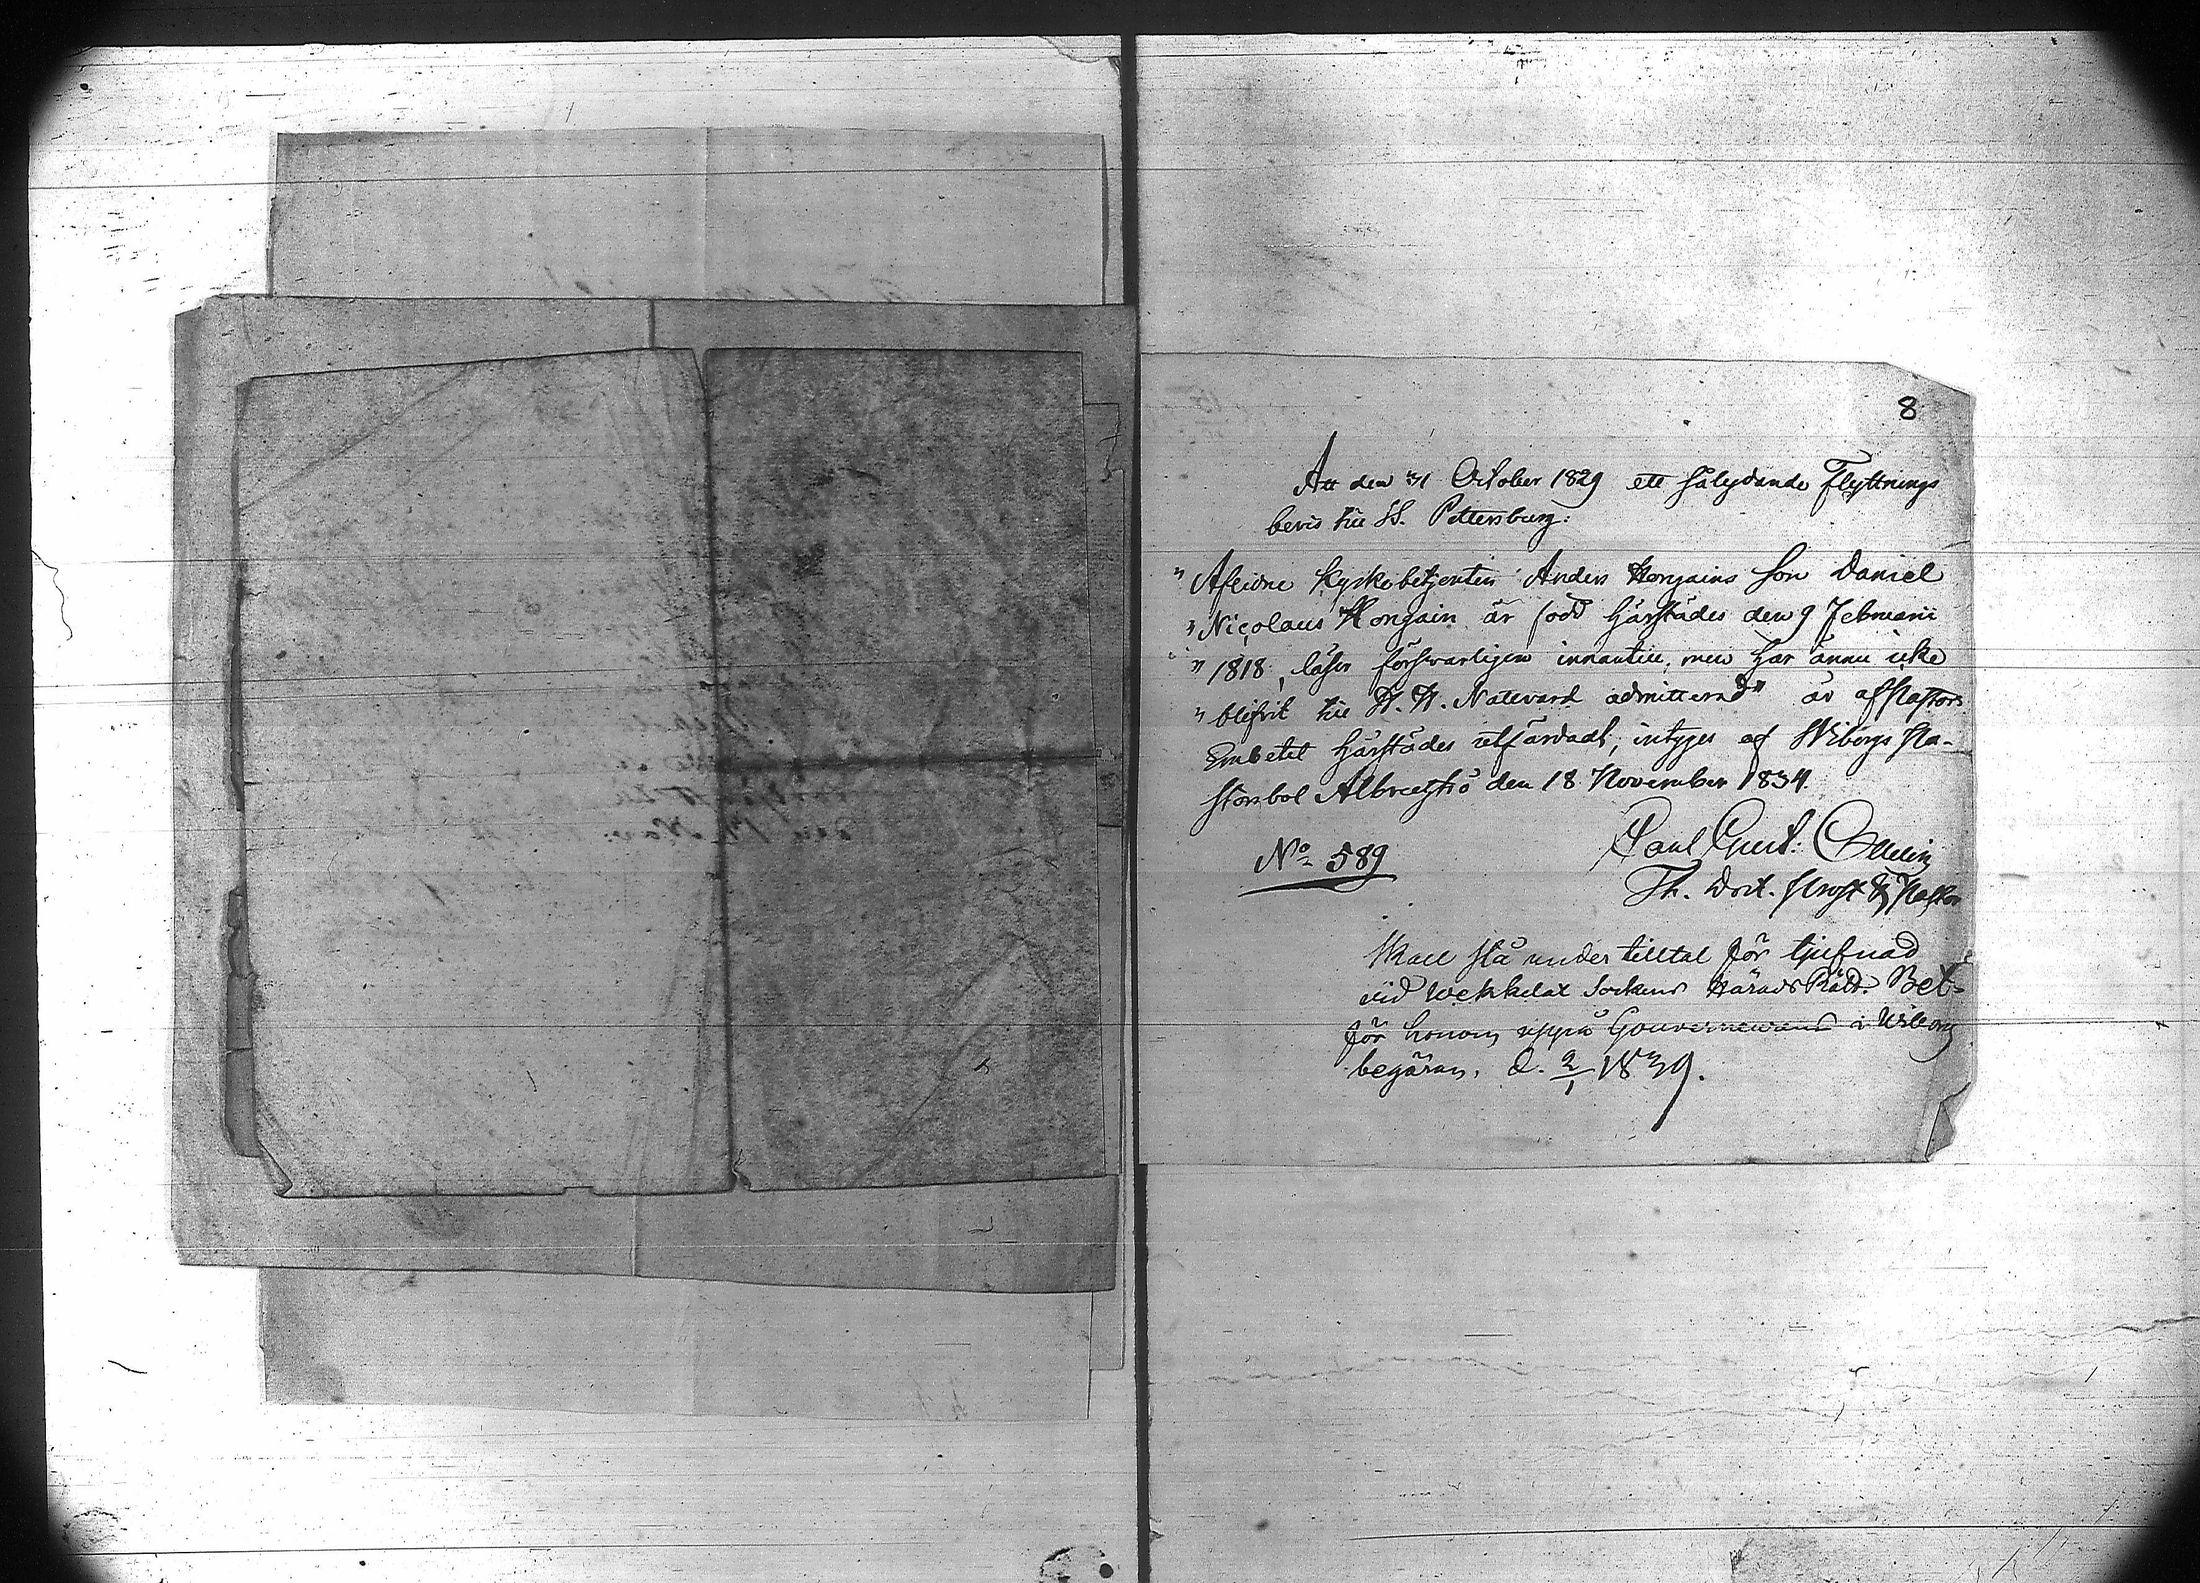 8
Att den 31 October 1829 ett sålydande Flyttnings
bevis till St. Pettersburg:
"Aflidne Kyrkobetjenten Anders Hongains son Daniel
"Nicolaus Hongain är född härstädes den 9 Februarii
"1818, läser försvarligen innantill, men har ännu icke
"blifvit till H. H. Nattvard admitterad" är af Pastors
Embetet härstädes utfärdadt, intyges af Wiborgs Pa-
storsbol Albrectstio den 18 November 1834.
No 589
Paul Gust:
Th. Doct. Prost & Pastor
Skall stå under tilltal för tjufnad
vid Wekkelax Sockens Härads Rätt. Bet.
för honom uppå Gouverneurens i Wiborg
begäran, d. 2/1 1839.